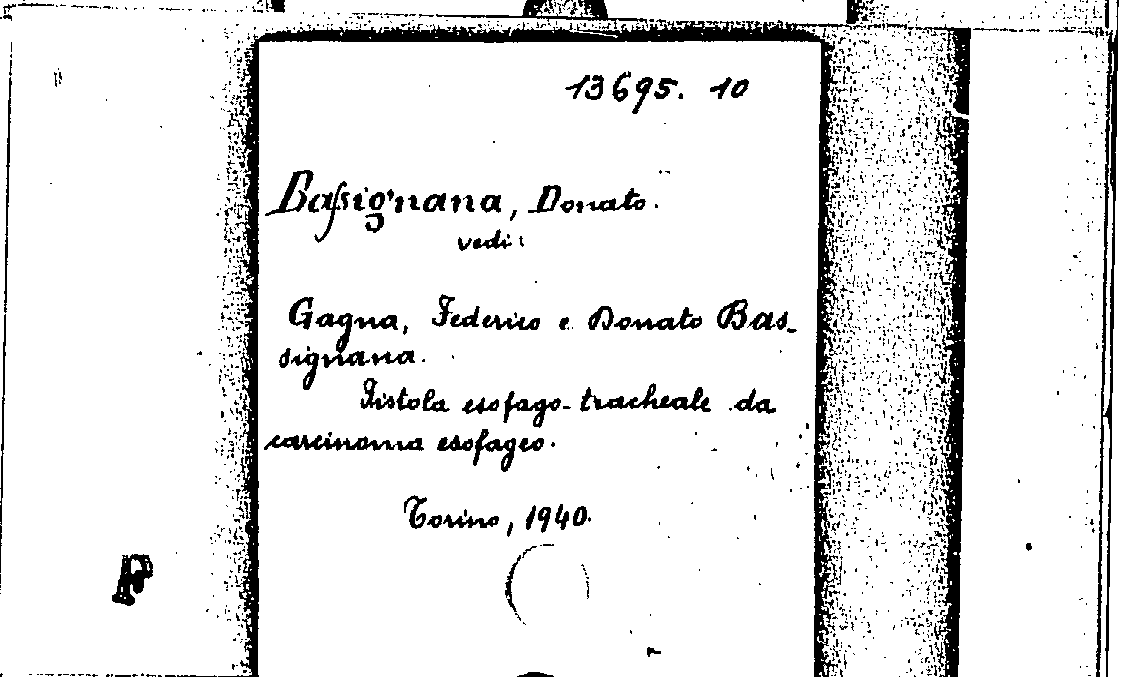 13695. 10
Baſsignana, Donato.
vedi:
Gagna, Federico e Donato Bas-
signana.
Fistola esofago-tracheale da
carcinoma esofageo.
Torino, 1940.
F